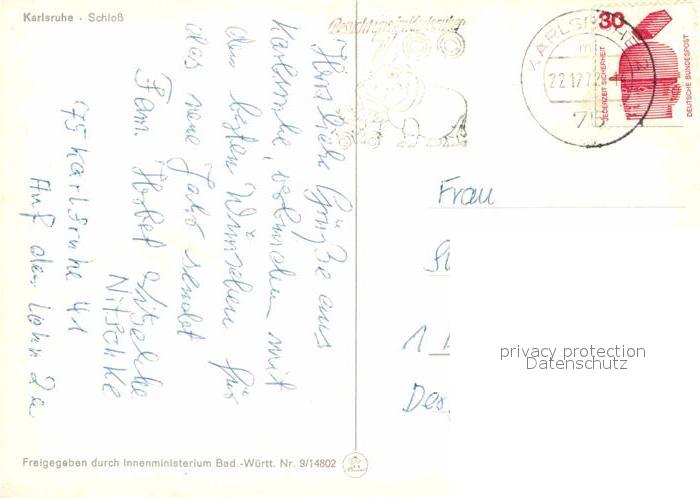 Karlsruhe · Schloß
Herzliche Grüße aus
Karlsruhe, verbunden mit
den besten Wünschen für
das neue Jahr sendet
Fam.
Nitschke
75 Karlsruhe 41
Auf der Lohn 2a
Besucht den
KARLSRUHE
22.12.72
75
30
JEDERZEIT SICHERHEIT
DEUTSCHE BUNDESPOST
Frau
1
privacy protection
Datenschutz
Freigegeben durch Innenministerium Bad.-Württ. Nr. 9/14802